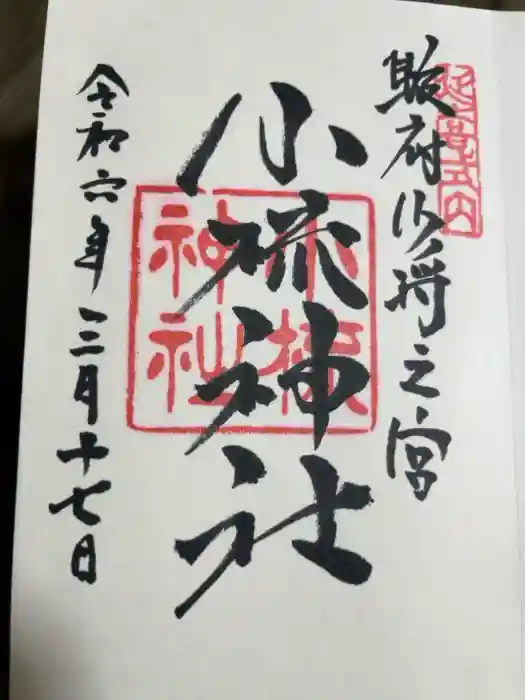 延喜式内
駿府少将之宮
小梳神社
小梳神社
令和六年三月十七日